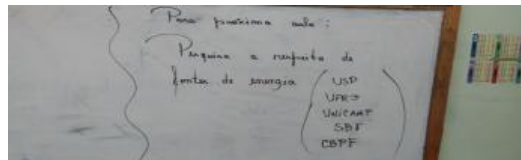 Para próxima aula:
Pesquisa a respeito de
fontes de energia
USP
UFRJ
UNICAMP
SBF
CBPF